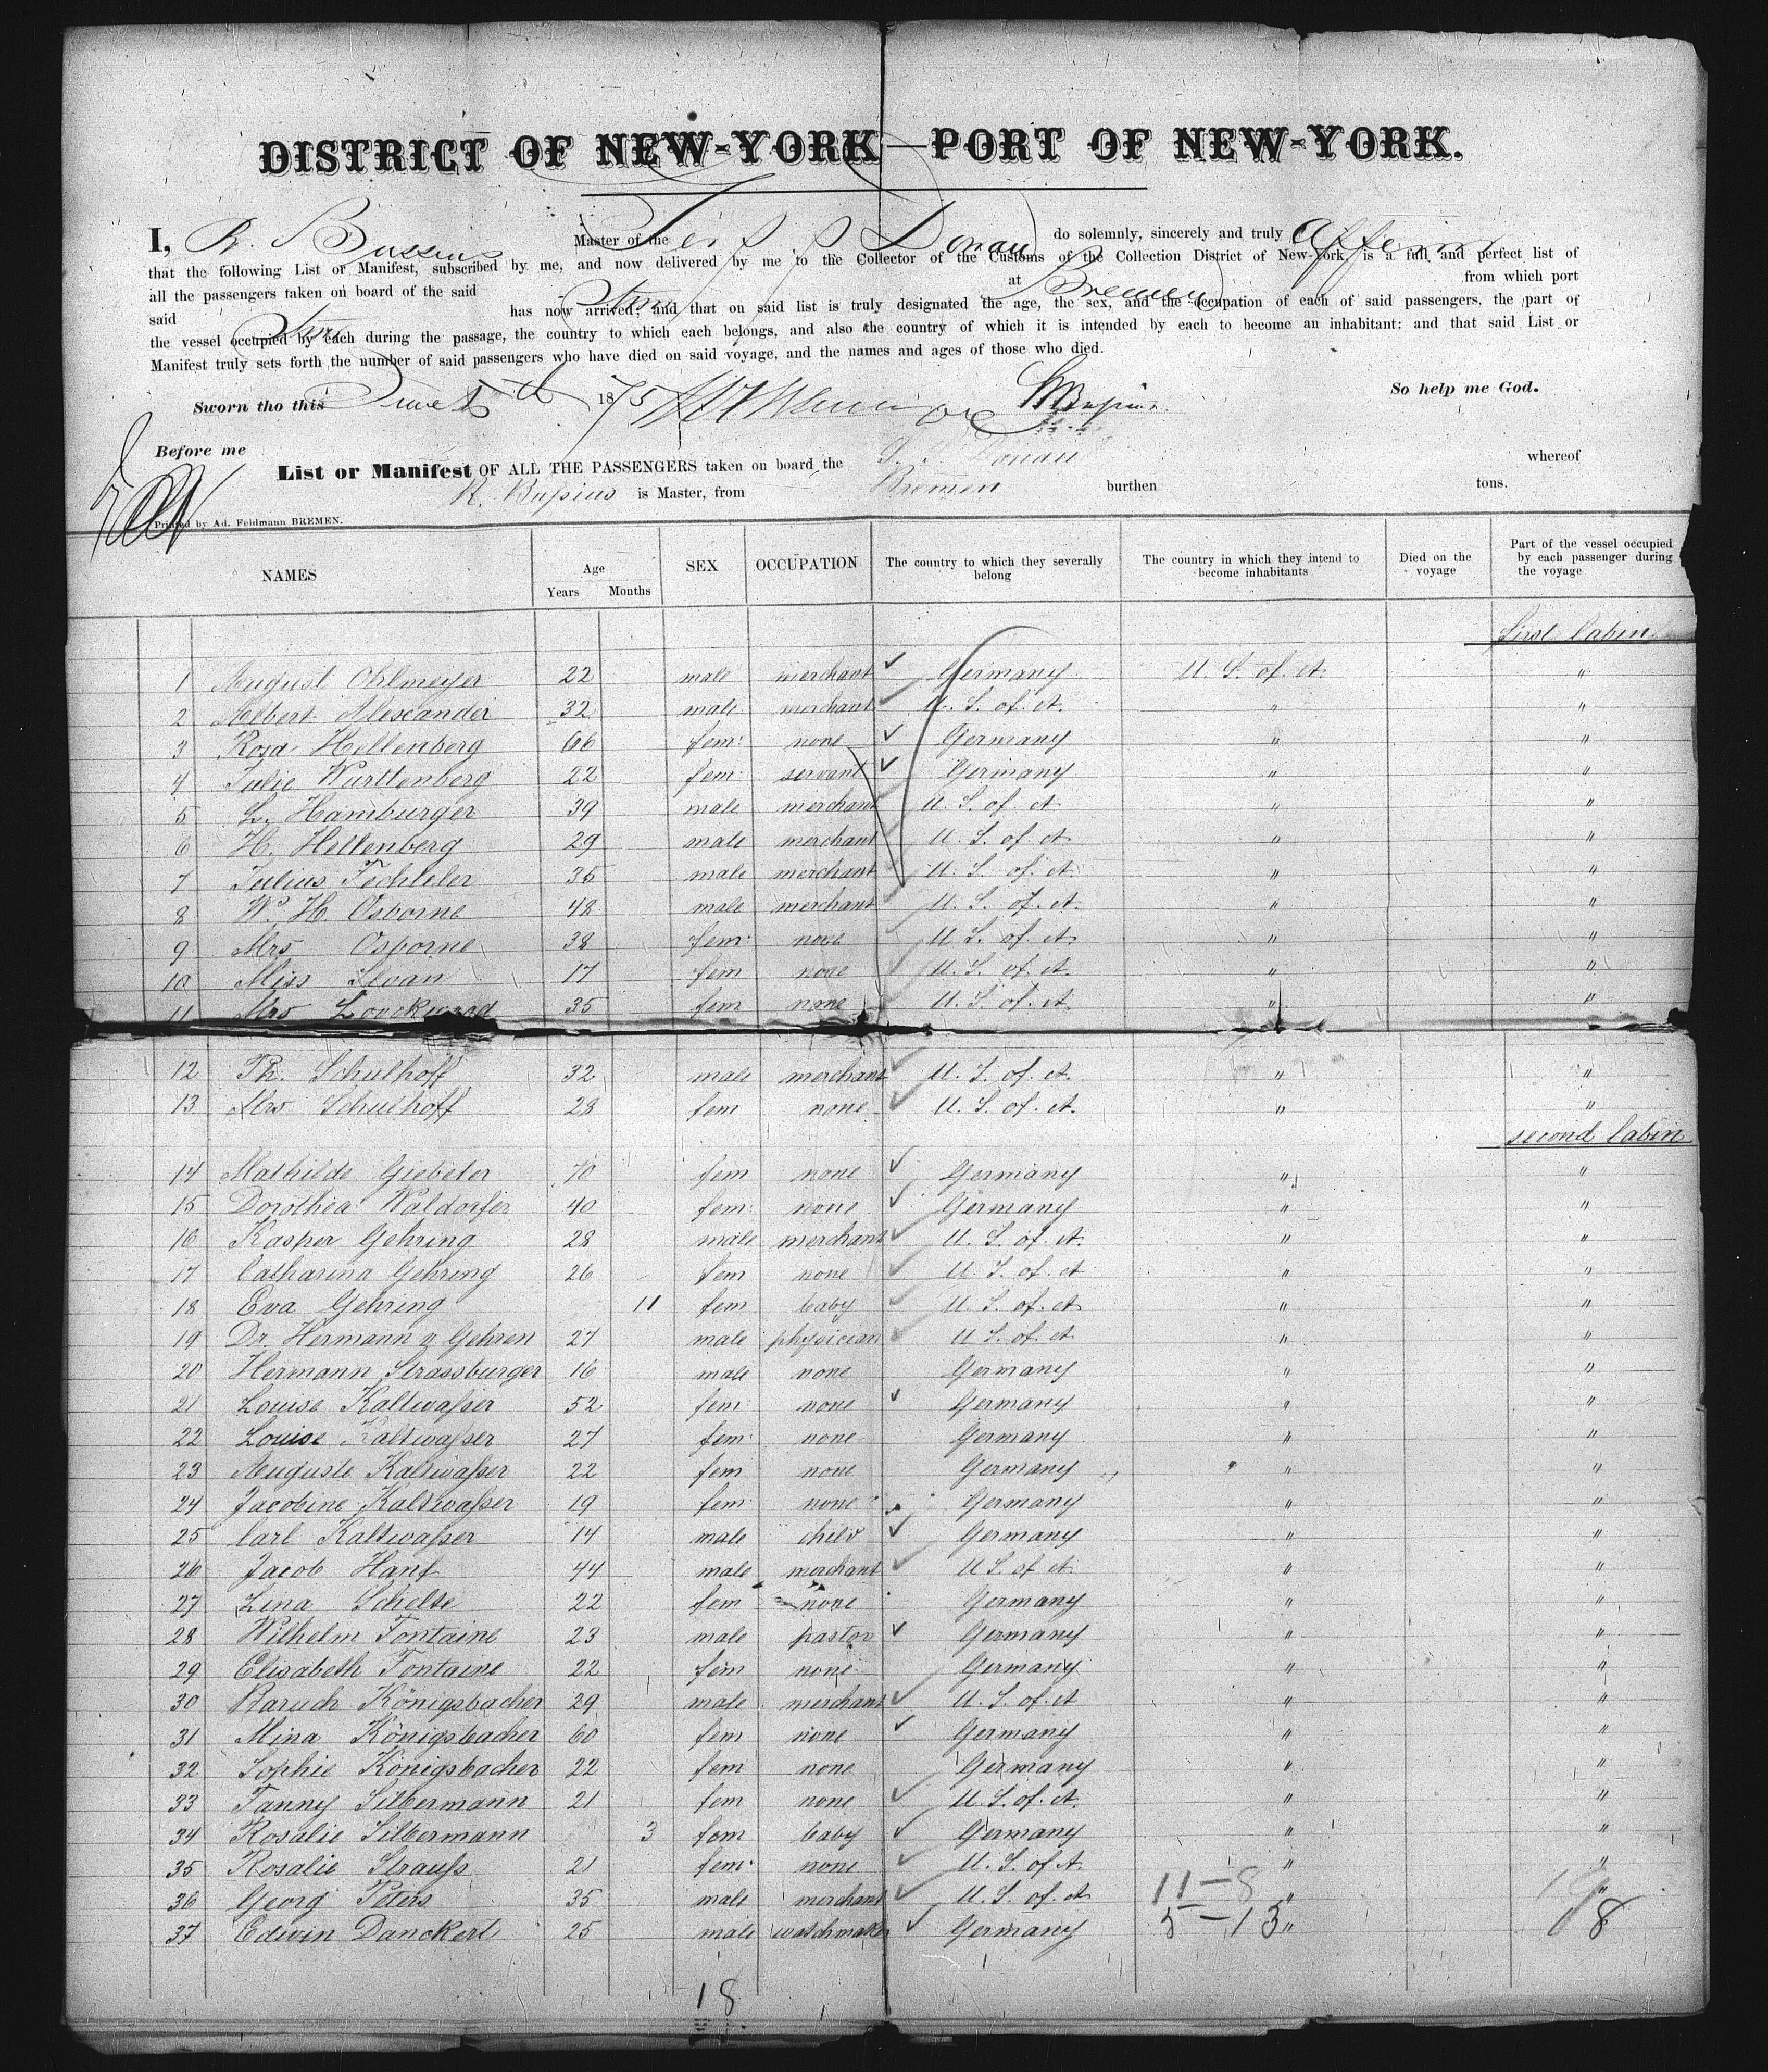 DISTRICT OF NEW-YORK—PORT OF NEW-YORK.
I, R. Bussius Master of the Donau do solemnly, sincerely and truly affirm
that the following List or Manifest, subscribed by me, and now delivered by me to the Collector of the Customs of the Collection District of New-York, is a full and perfect list of
all the passengers taken on board of the said at Bremen from which port
said has now arrived; and that on said list is truly designated the age, the sex, and the occupation of each of said passengers, the part of
the vessel occupied by each during the passage, the country to which each belongs, and also the country of which it is intended by each to become an inhabitant: and that said List or
Manifest truly sets forth the number of said passengers who have died on said voyage, and the names and ages of those who died.
So help me God.
Sworn tho this June 5th 1875
Before me
List or Manifest OF ALL THE PASSENGERS taken on board the S. S. Donau whereof
R. Bußius is Master, from Bremen burthen tons.
Printed by Ad. Feldmann BREMEN.
NAMES Age Years Months SEX OCCUPATION The country to which they severally belong The country in which they intend to become inhabitants Died on the voyage Part of the vessel occupied by each passenger during the voyage
first Cabin
1 August Ohlmeyer 22 male merchant Germany U. S. of. A. "
2 Albert Alexander 32 male merchant U. S. of. A. " "
3 Rosa Hellenberg 66 fem: none Germany " "
4 Julie Württenberg 22 fem: servant Germany " "
5 L. Hamburger 39 male merchant U. S. of. A " "
6 H. Hellenberg 29 male merchant U. S. of. A " "
7 Julius Fechteler 35 male merchant U. S. of. A. " "
8 W. H. Osborne 48 male merchant U. S. of. A. " "
9 Mrs Osborne 38 fem: none U S. of. A. " "
10 Miss Sloan 17 fem none U. S. of. A. " "
11 Mrs Lovckwood 35 fem none U. S. of. A " "
12 Th. Schulhoff 32 male merchant U. S. of. A. " "
13 Mrs Schulhoff 28 fem none U. S. of. A. " "
second Cabin
14 Mathilde Giebeler 70 fem none Germany " "
15 Dorothea Waldorfer 40 fem: none Germany " "
16 Kasper Gehring 28 male merchant U. S. of. A. " "
17 Catharina Gehring 26 fem none U. S. of. A " "
18 Eva Gehring 11 fem baby U. S. of. A " "
19 Dr. Hermann v. Gehren 27 male physician U S. of. A " "
20 Hermann Strassburger 16 male none Germany " "
21 Louise Kaltwaßer 52 fem none Germany " "
22 Louise Kaltwaßer 27 fem: none Germany " "
23 Auguste Kaltwaßer 22 fem none Germany " "
24 Jacobine Kaltwaßer 19 fem none Germany " "
25 Carl Kaltwaßer 14 male child Germany " "
26 Jacob Hanf 44 male merchant U S. of A " "
27 Lina Schelse 22 fem none Germany " "
28 Wilhelm Fontaine 23 male pastor Germany " "
29 Elisabeth Fontaine 22 fem none Germany " "
30 Baruch Königsbacher 29 male merchant U. S. of. A " "
31 Mina Königsbacher 60 fem none Germany " "
32 Sophie Königsbacher 22 fem none Germany " "
33 Fanny Silbermann 21 fem none U. S. of. A. " "
34 Rosalie Silbermann 3 fem baby Germany " "
35 Rosalie Strauß 21 fem none U. S. of A. " "
36 Georg Peters 35 male merchant U. S. of. A 11-8 " "
37 Edwin Danckert 25 male watchmaker Germany 5-13 "
18